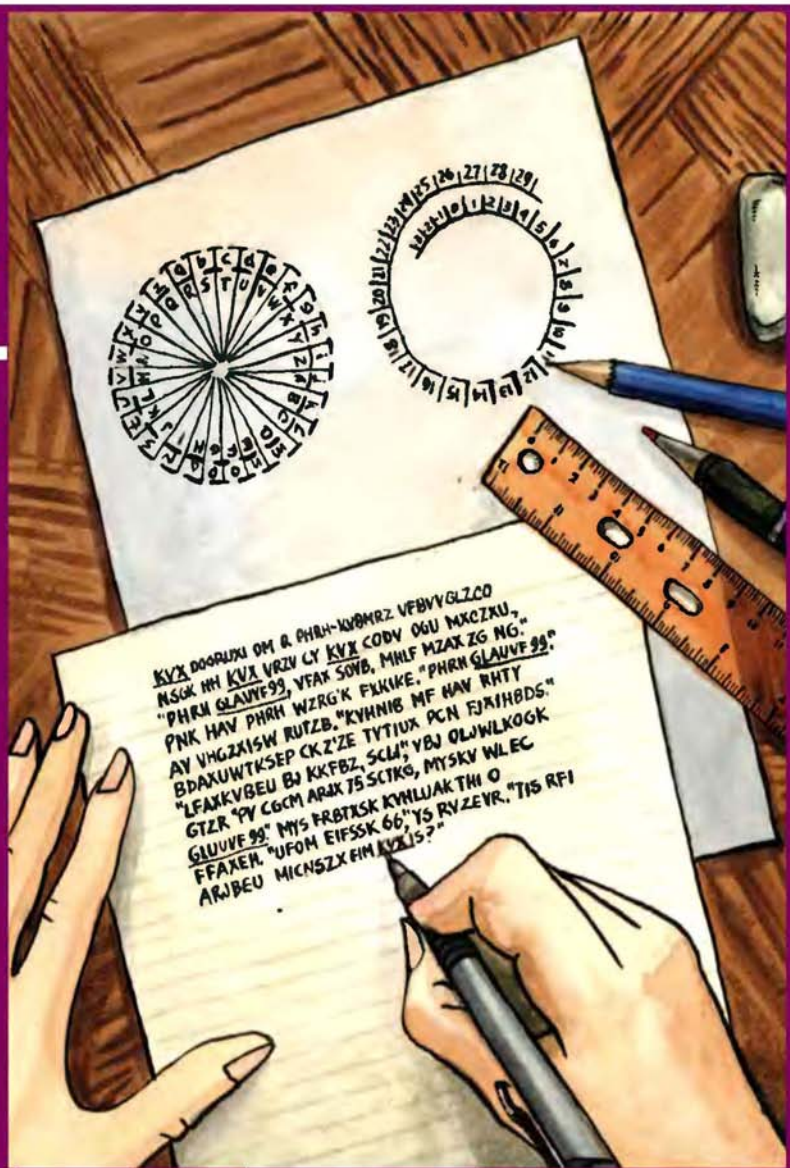 a b c d e f g h i j k l m n o p q r s t u v w x y z
R S T U V W X Y Z A B C D E F G H I J K L M N O P Q
-3 -2 -1 0 1 2 3 4 5 6 7 8 9 10 11 12 13 14 15 16 17 18 19 20 21 22 23 24 25 26 27 28 29
KVX DOGRUXI OM R PHRH-KVBMRZ VFBVVGLZCO
NSGK HH KVX VRZV CY KVX CODV OGU MXCZXU,
"PHRH GLAUVF99, VFAX SOYB, MHLF MZAX ZG NG."
PNK HAV PHRH WZRG'K FXKIKE. "PHRH GLAUVF 99."
AY VHGZXISW RUTZB. "KVHNIB MF HAV RHTY
BDAXUWTKSEP CKZ'ZE TYTIUX PCN FJXIHBDS."
"LFAXKVBEU BJ KKFBZ, SCLI," VBJ OLJWLKOGK
GTZR "PV CGCM ARJX 75 SCIKG, MYSKV WLEC
GLUUVF 99." MYS FRBTXSK KVHLUJAK THI O
FFAXEH. "UFOM EIFSSK 66," YS RVZEVR. "TIS RFI
ARJBEU MICNSZX FIM KVX IS?"